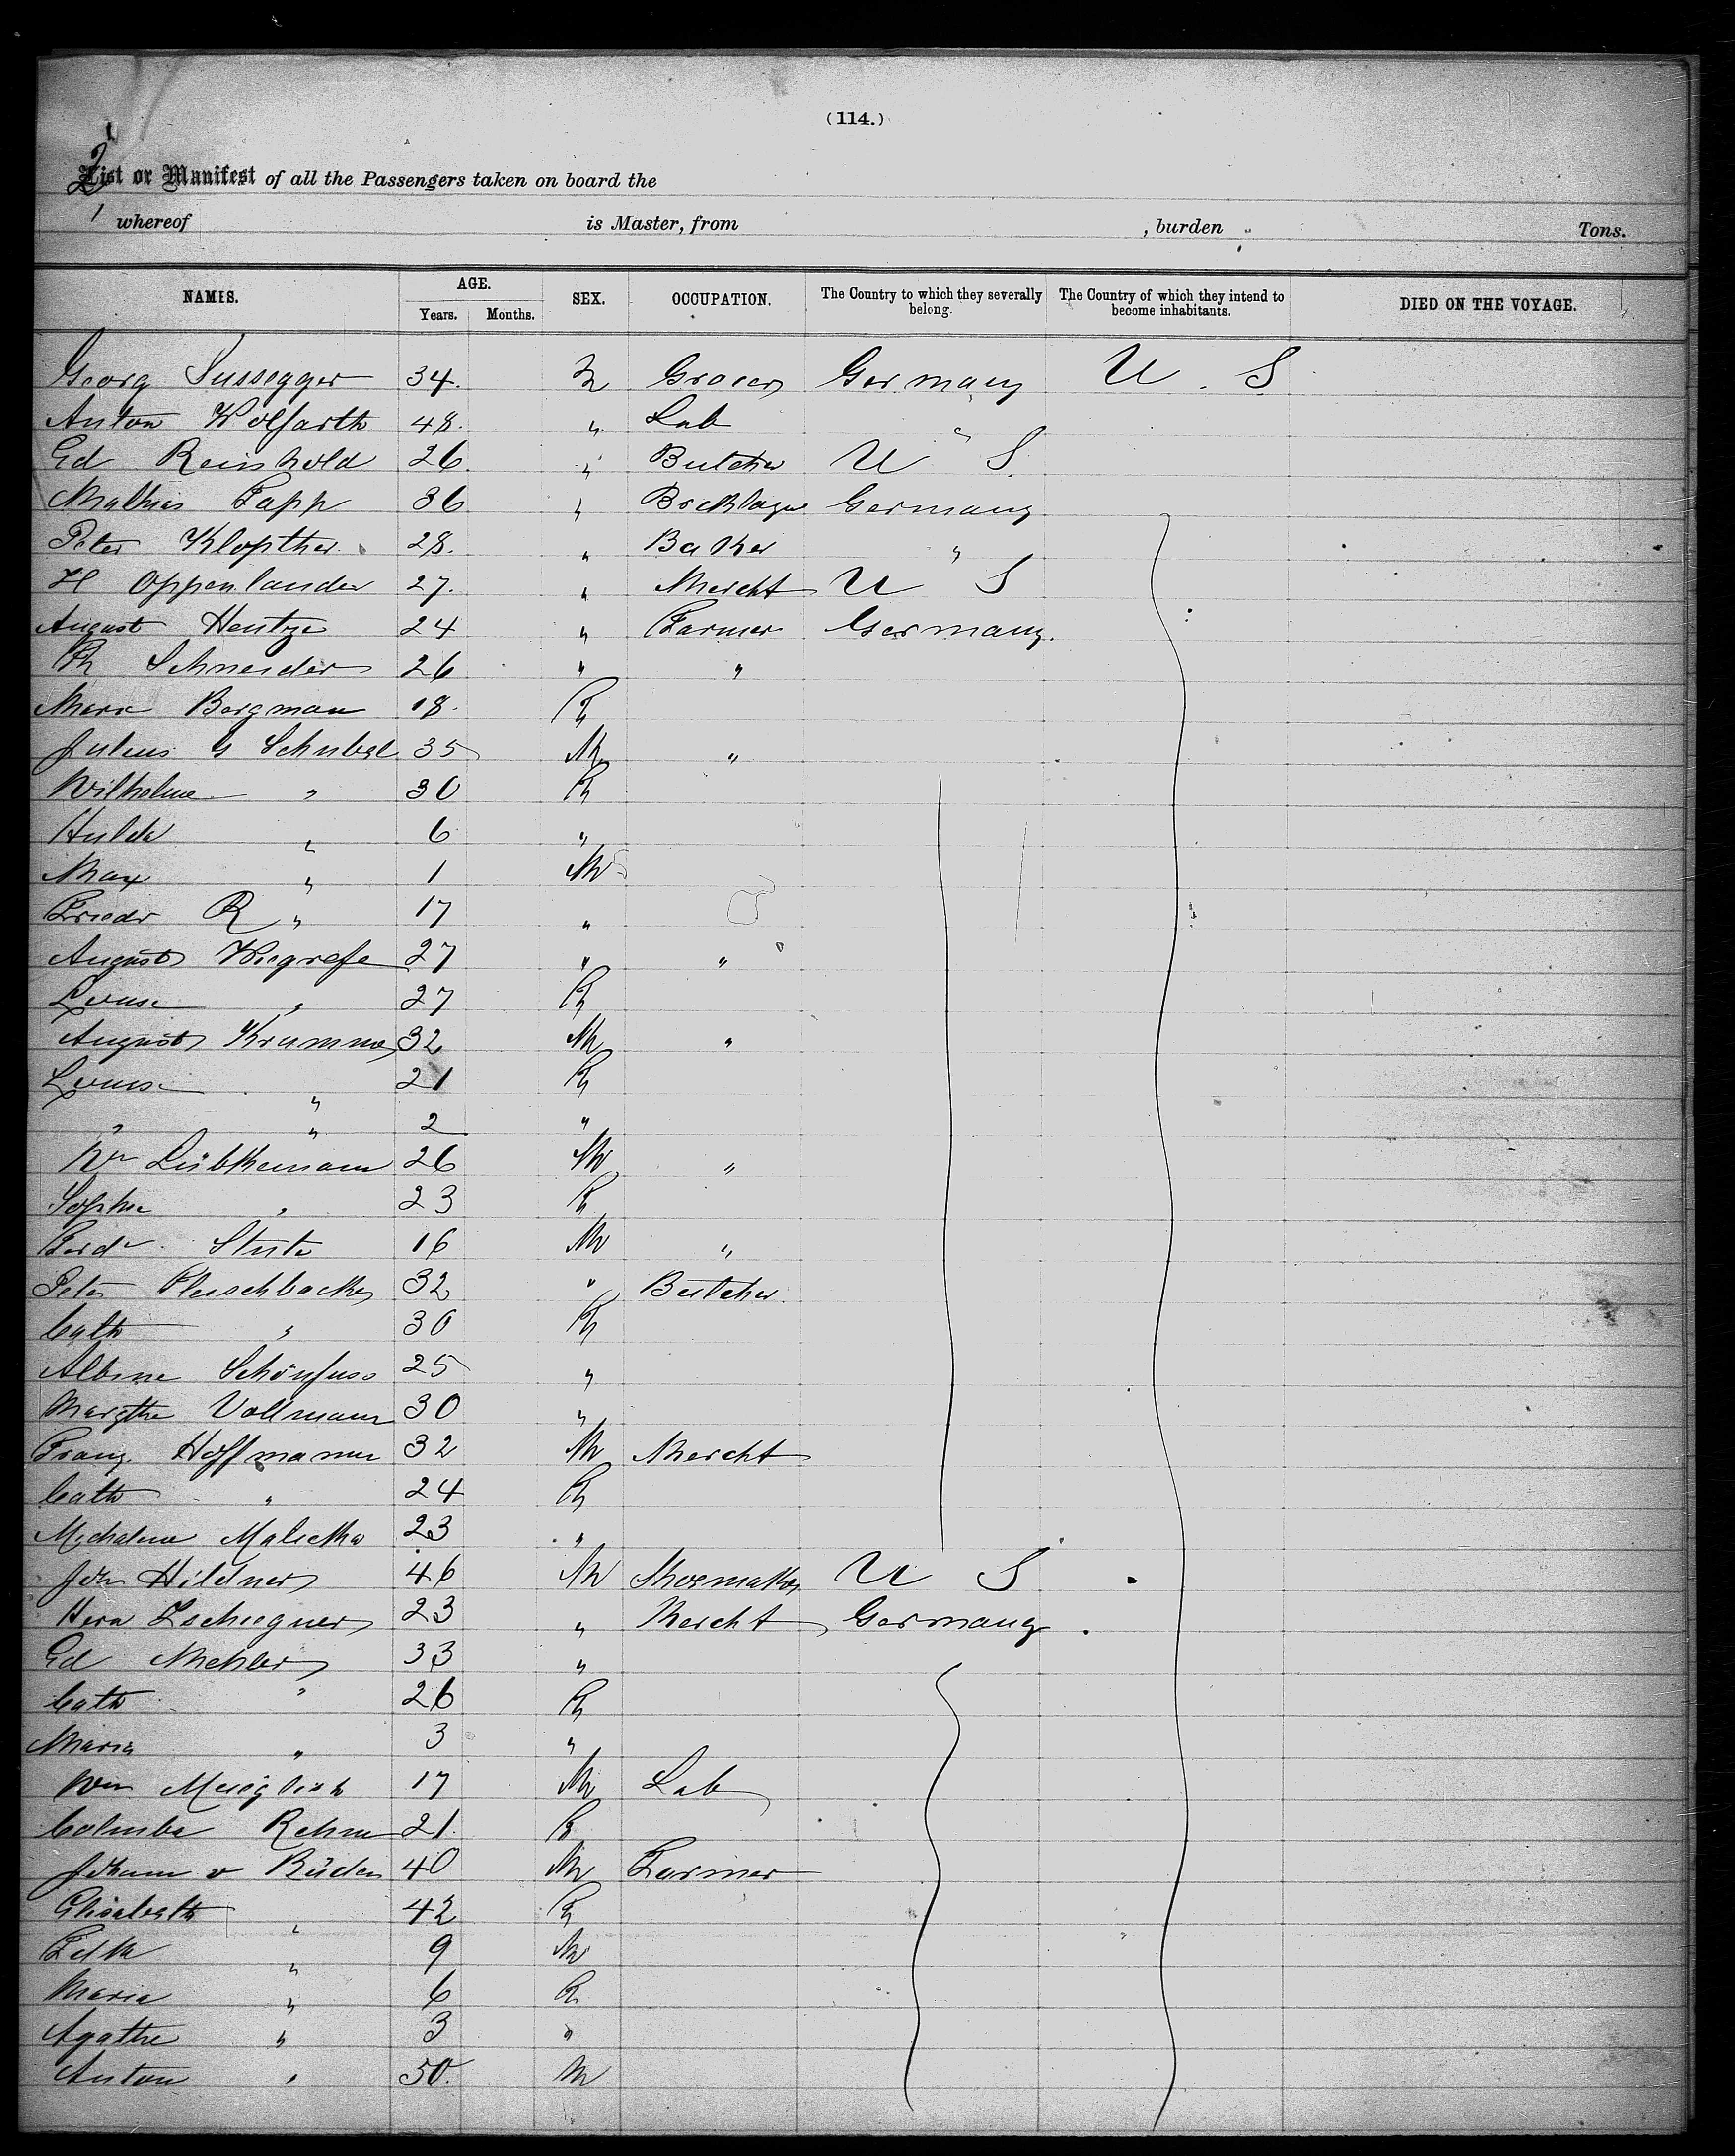 (114.)
2
List or Manifest of all the Passengers taken on board the
1 whereof is Master, from , burden Tons.
NAMES. AGE. Years. Months. SEX. OCCUPATION. The Country to which they severally belong. The Country of which they intend to become inhabitants. DIED ON THE VOYAGE.
Georg Sussegger 34. M Grocer Germany U. S
Anton Wolfarth 48. " Lab "
Ed Reinhold 26. " Butcher U S
Mathias Papp 36 " Bricklayer Germany
Peter Klopther 28. " Baker "
H Oppenlander 27. " Mercht U S
August Hentze 24 " Farmer Germany.
Ph Schneider 26 " "
Bergman 18. F
Julius G Schubel 35 M "
Wilhelme " 30 F
Hulda " 6 "
Max " 1 M
Friedr R " 17 "
August Wiegrefe 27 " "
Louise " 27 F
August Krumme 32 M "
Louise " 21 F
" " 2 "
Wm Lübkemann 26 M "
Sophie " 23 F
Ferdr. Stute 16 M "
Peter Fleischbacker 32 " Butcher.
Cath " 30 F
Albine Schönfuss 25 "
Margthe Vollmann 30 "
Franz Hoffmann 32 M Mercht
Cath " 24 F
Michaline Malietka 23 "
Joh Hildner 46 M Shoemaker U S
Zschiegner 23 " Mercht Germany
Ed Mehler 33 "
Cath " 26 F
Maria " 3 "
Wm 17 M Lab
Columba Rehm 21. F
Johann v Büden 40 M Farmer
Elisabeth " 42 F
" 9 M
Maria " 6 F
Agathe " 3 "
Anton " 50. M